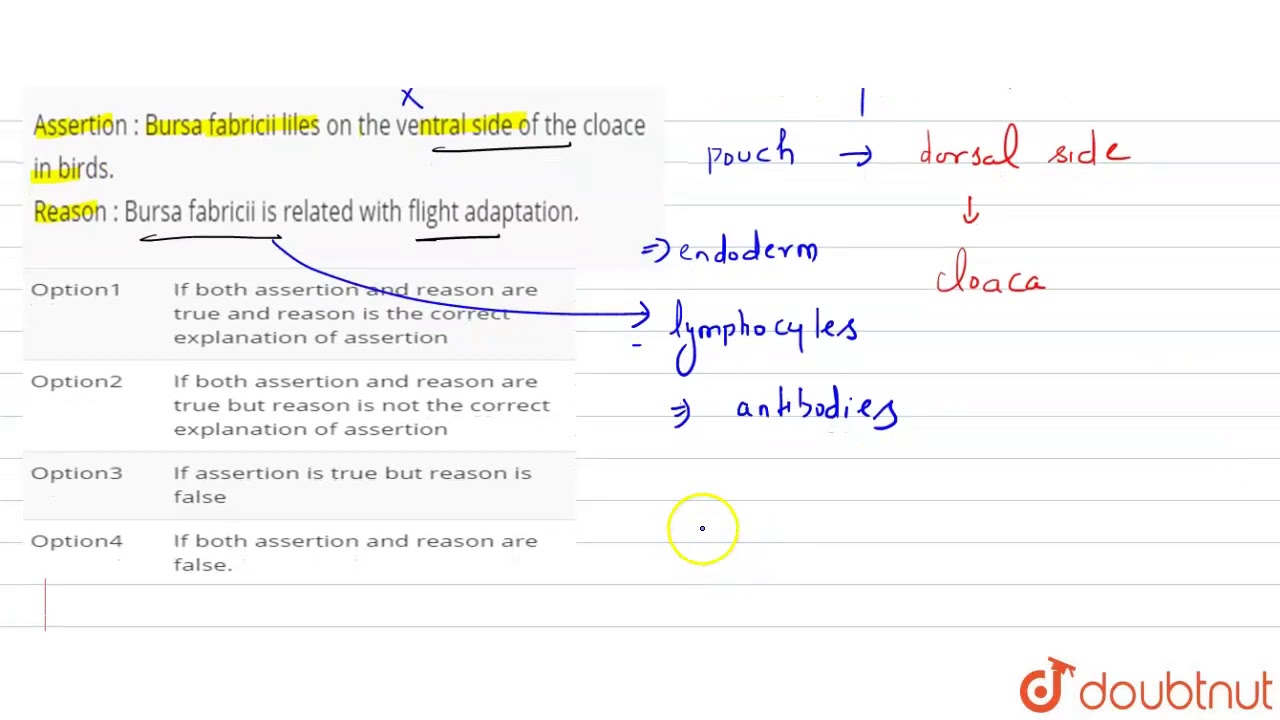 x
Assertion : Bursa fabricii liles on the ventral side of the cloace
in birds.
Reason : Bursa fabricii is related with flight adaptation.
Option1 If both assertion and reason are
true and reason is the correct
explanation of assertion
Option2 If both assertion and reason are
true but reason is not the correct
explanation of assertion
Option3 If assertion is true but reason is
false
Option4 If both assertion and reason are
false.
pouch → dorsal side
↓
cloaca
⇒ endoderm
→ lymphocytes
⇒ antibodies
doubtnut